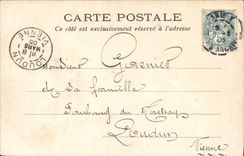 CARTE POSTALE
Ce côté est exclusivement réservé à l'adresse
LOUDUN
8
MARS
VIENNE
Monsieur Garnier
et sa famille
Faubourg du Martray
Loudun
Vienne